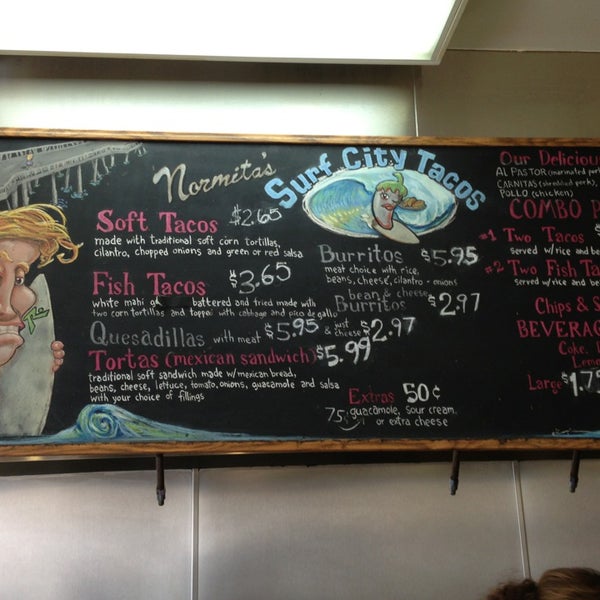 Normita's
Surf City Tacos
Soft Tacos $2.65
made with traditional soft corn tortillas,
cilantro, chopped onions and green or red salsa
Fish Tacos $3.65
white mahi battered and fried made with
two corn tortillas and topped with cabbage and pico de gallo
Quesadillas with meat $5.95 & just cheese $2.97
Tortas (mexican sandwich) $5.99
traditional soft sandwich made w/mexican bread,
beans, cheese, lettuce, tomato, onions, guacamole and salsa
with your choice of fillings
Burritos $5.95
meat choice with rice,
beans, cheese, cilantro - onions
bean & cheese
Burritos $2.97
Extras 50¢
75¢ guacamole, sour cream,
or extra cheese
Our Deliciou
AL PASTOR (marinated pork
CARNITAS (shredded pork),
POLLO (chicken)
COMBO P
#1 Two Tacos $
served w/rice and be
#2 Two Fish Ta
served w/rice and be
Chips & S
BEVERAG
Coke,
Lemo
Large $1.75